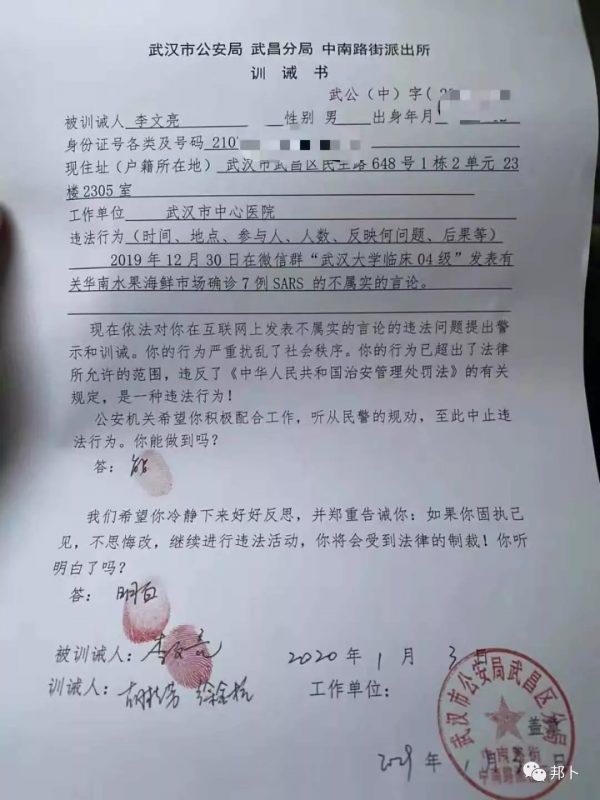 武汉市公安局 武昌分局 中南路街派出所
训 诫 书
武公（中）字(
被训诫人 李文亮 性别 男 出身年月
身份证号各类及号码 210
现住址（户籍所在地） 武汉市武昌区民主路648号1栋2单元23
楼2305室
工作单位 武汉市中心医院
违法行为（时间、地点、参与人、人数、反映何问题、后果等）
2019年12月30日在微信群“武汉大学临床04级”发表有
关华南水果海鲜市场确诊7例SARS的不属实的言论。
现在依法对你在互联网上发表不属实的言论的违法问题提出警
示和训诫。你的行为严重扰乱了社会秩序。你的行为已超出了法律
所允许的范围，违反了《中华人民共和国治安管理处罚法》的有关
规定，是一种违法行为！
公安机关希望你积极配合工作，听从民警的规劝，至此中止违
法行为。你能做到吗？
答： 能
我们希望你冷静下来好好反思，并郑重告诫你：如果你固执己
见，不思悔改，继续进行违法活动，你将会受到法律的制裁！你听
明白了吗？
答： 明白
被训诫人：李文亮 2020年1月3日
训诫人： 工作单位：
武汉市公安局武昌区分局
盖章
中南路街
年1月 日
邦卜